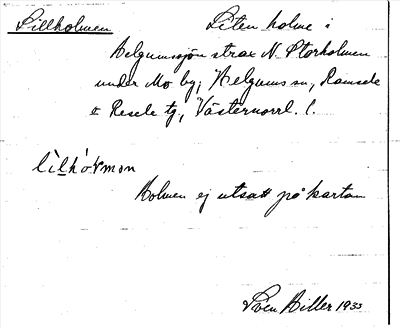 Lillholmen
Liten holme i
Helgumssjön strax N. Storholmen
under Mo by; Helgums sn, Ramsele
o Resele tg, Västernorrl. l.
Holmen ej utsatt på kartan
Sven Hiller 1933